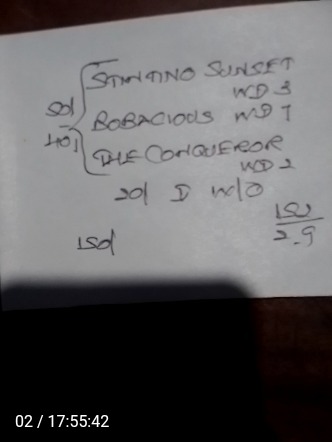 STANTINO SUNSET
WD 3
50/ BOBACIOUS WD 7
40/ THE CONQUEROR
WD 2
20/ I W/O
150/
152
2.9
02 / 17:55:42